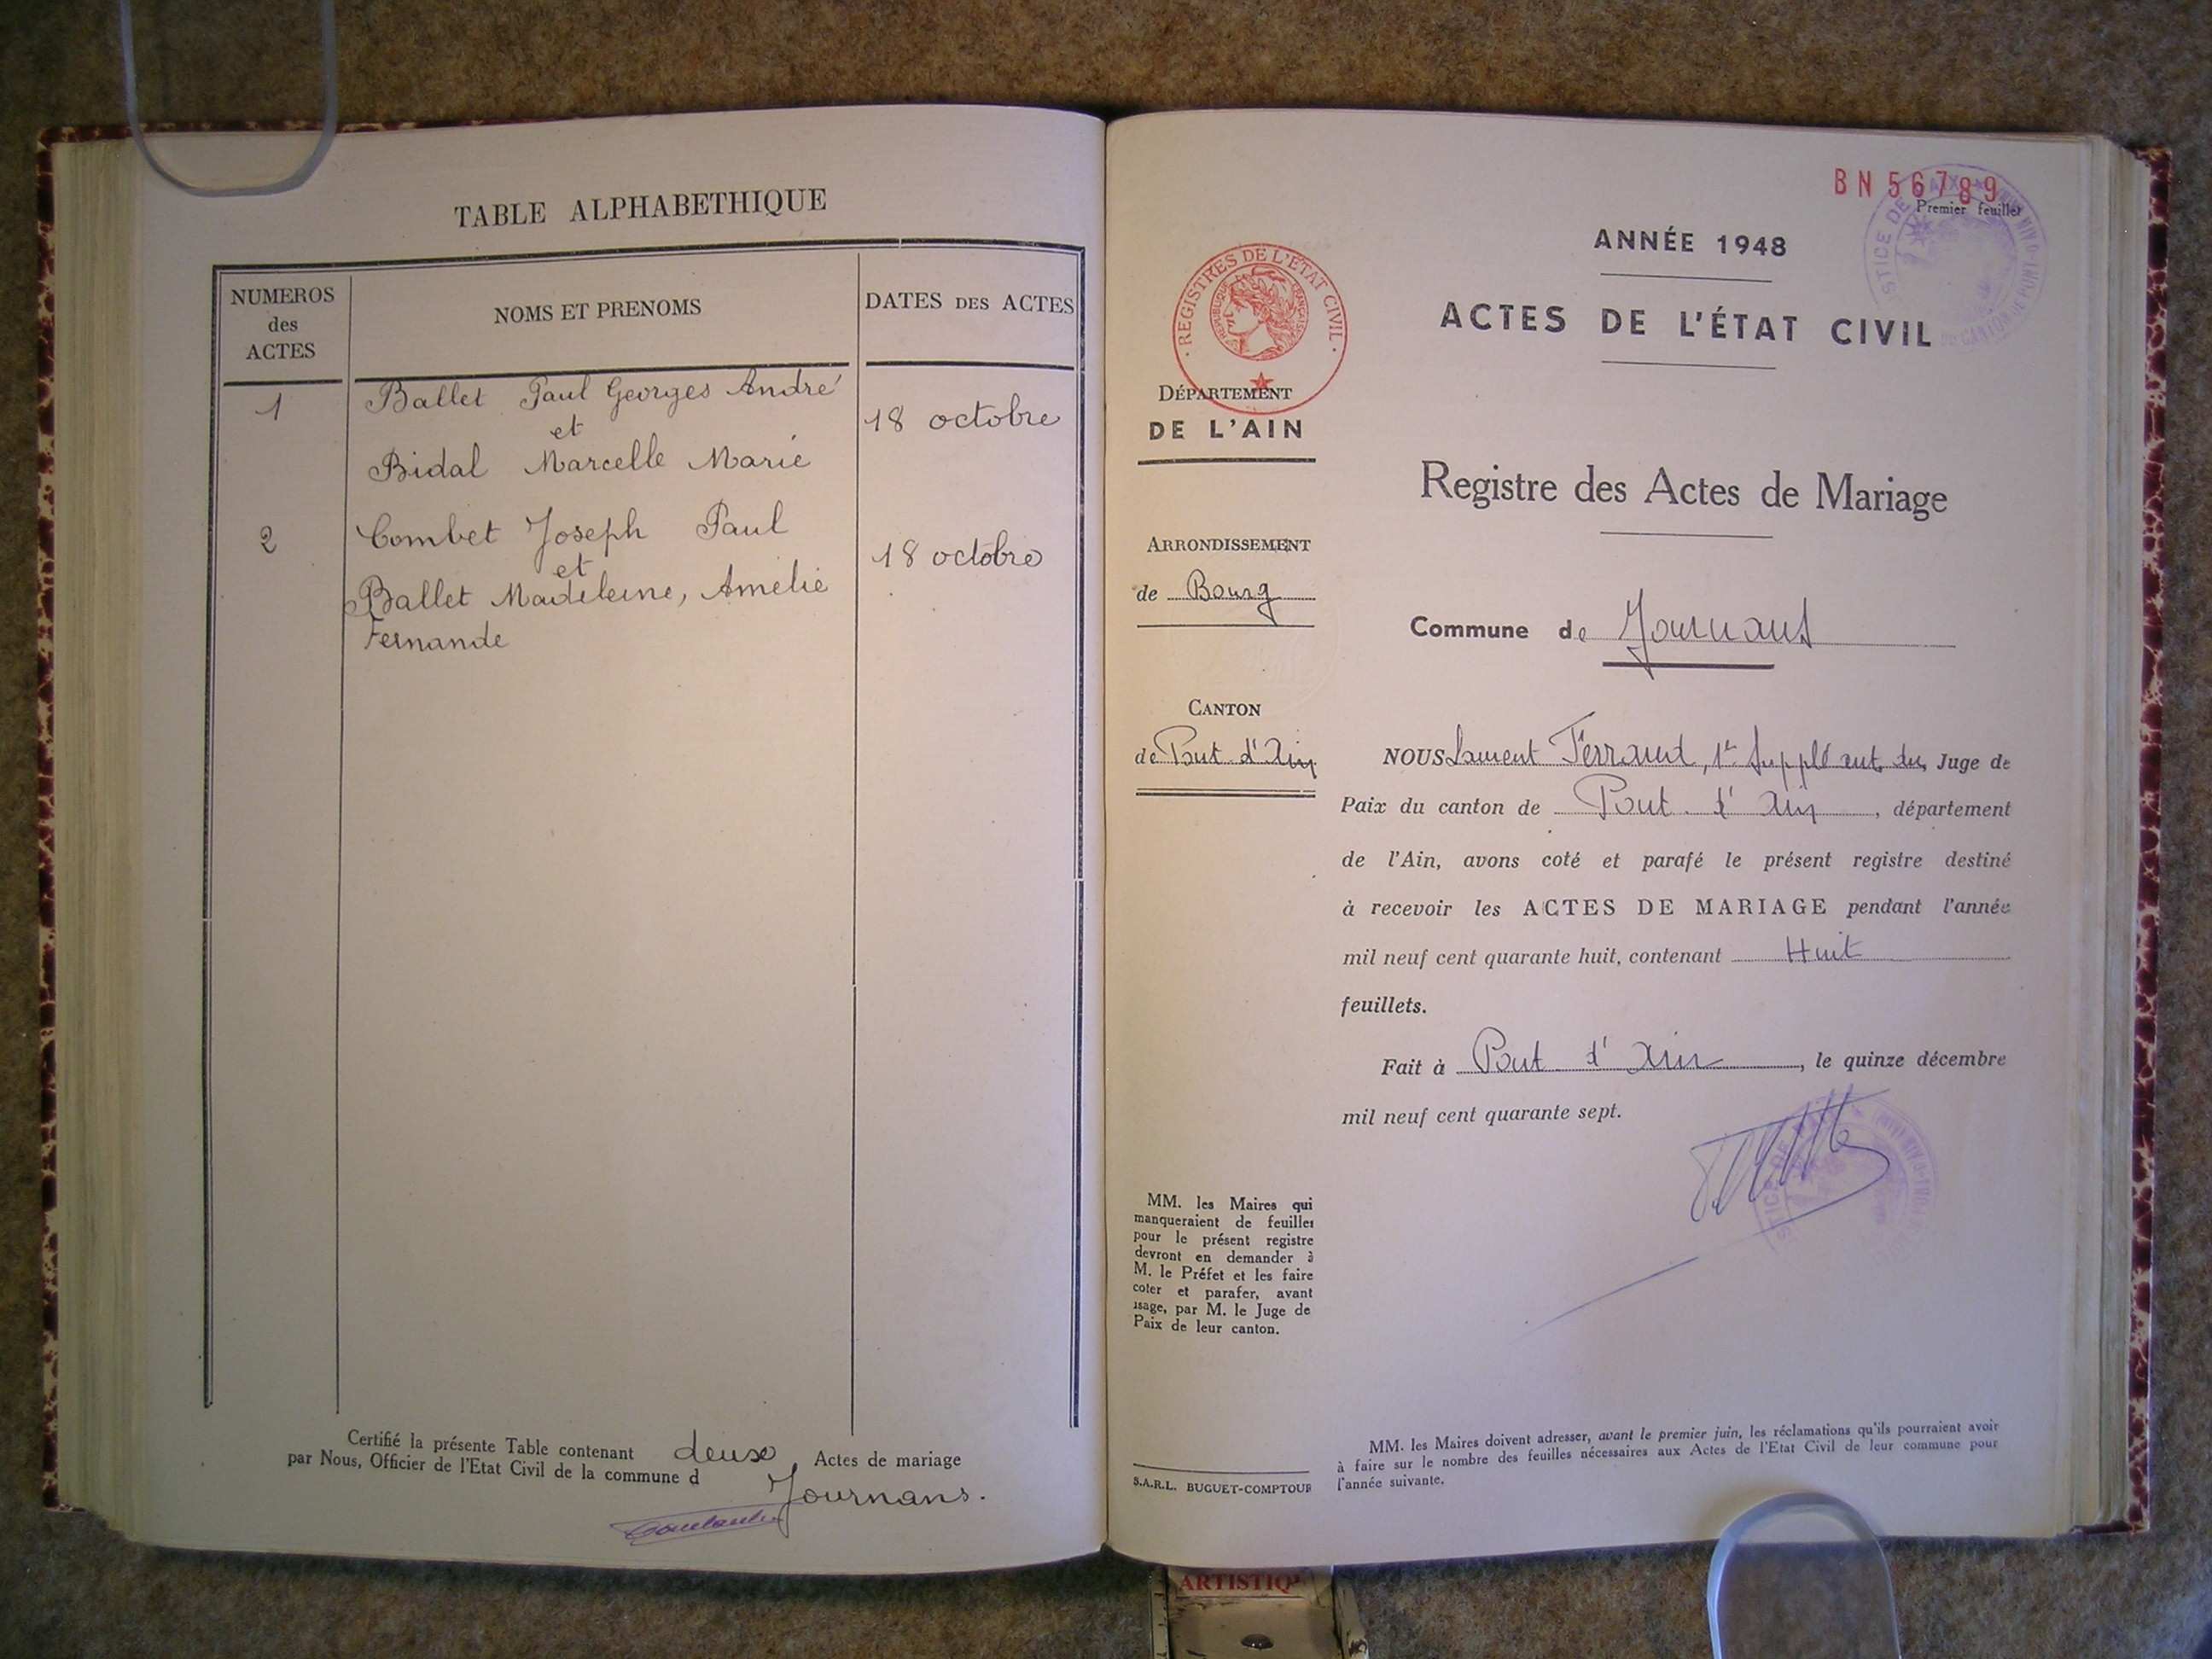 TABLE ALPHABETHIQUE
NUMEROS
des
ACTES
NOMS ET PRENOMS
DATES DES ACTES
1
Ballet Paul Georges André
et
Bidal Marcelle Marie
18 octobre
2
Combet Joseph Paul
et
Ballet Madeleine, Amélie
Fernande
18 octobre
Certifié la présente Table contenant deux Actes de mariage
par Nous, Officier de l'Etat Civil de la commune d Journans.
BN 56789
Premier feuillet
ANNÉE 1948
ACTES DE L'ÉTAT CIVIL
REGISTRES DE L'ETAT CIVIL
REPUBLIQUE FRANÇAISE
DÉPARTEMENT
DE L'AIN
Registre des Actes de Mariage
ARRONDISSEMENT
de Bourg
Commune de Journans
CANTON
de Pont-d'Ain
NOUS Laurent Ferrand, 1er Suppléant du Juge de
Paix du canton de Pont-d'Ain, département
de l'Ain, avons coté et parafé le présent registre destiné
à recevoir les ACTES DE MARIAGE pendant l'année
mil neuf cent quarante huit, contenant Huit
feuillets.
Fait à Pont d'Ain, le quinze décembre
mil neuf cent quarante sept.
MM. les Maires qui
manqueraient de feuilles
pour le présent registre
devront en demander à
M. le Préfet et les faire
coter et parafer, avant
usage, par M. le Juge de
Paix de leur canton.
S.A.R.L. BUGUET-COMPTOUR
MM. les Maires doivent adresser, avant le premier juin, les réclamations qu'ils pourraient avoir
à faire sur le nombre des feuilles nécessaires aux Actes de l'Etat Civil de leur commune pour
l'année suivante.
ARTISTIQ